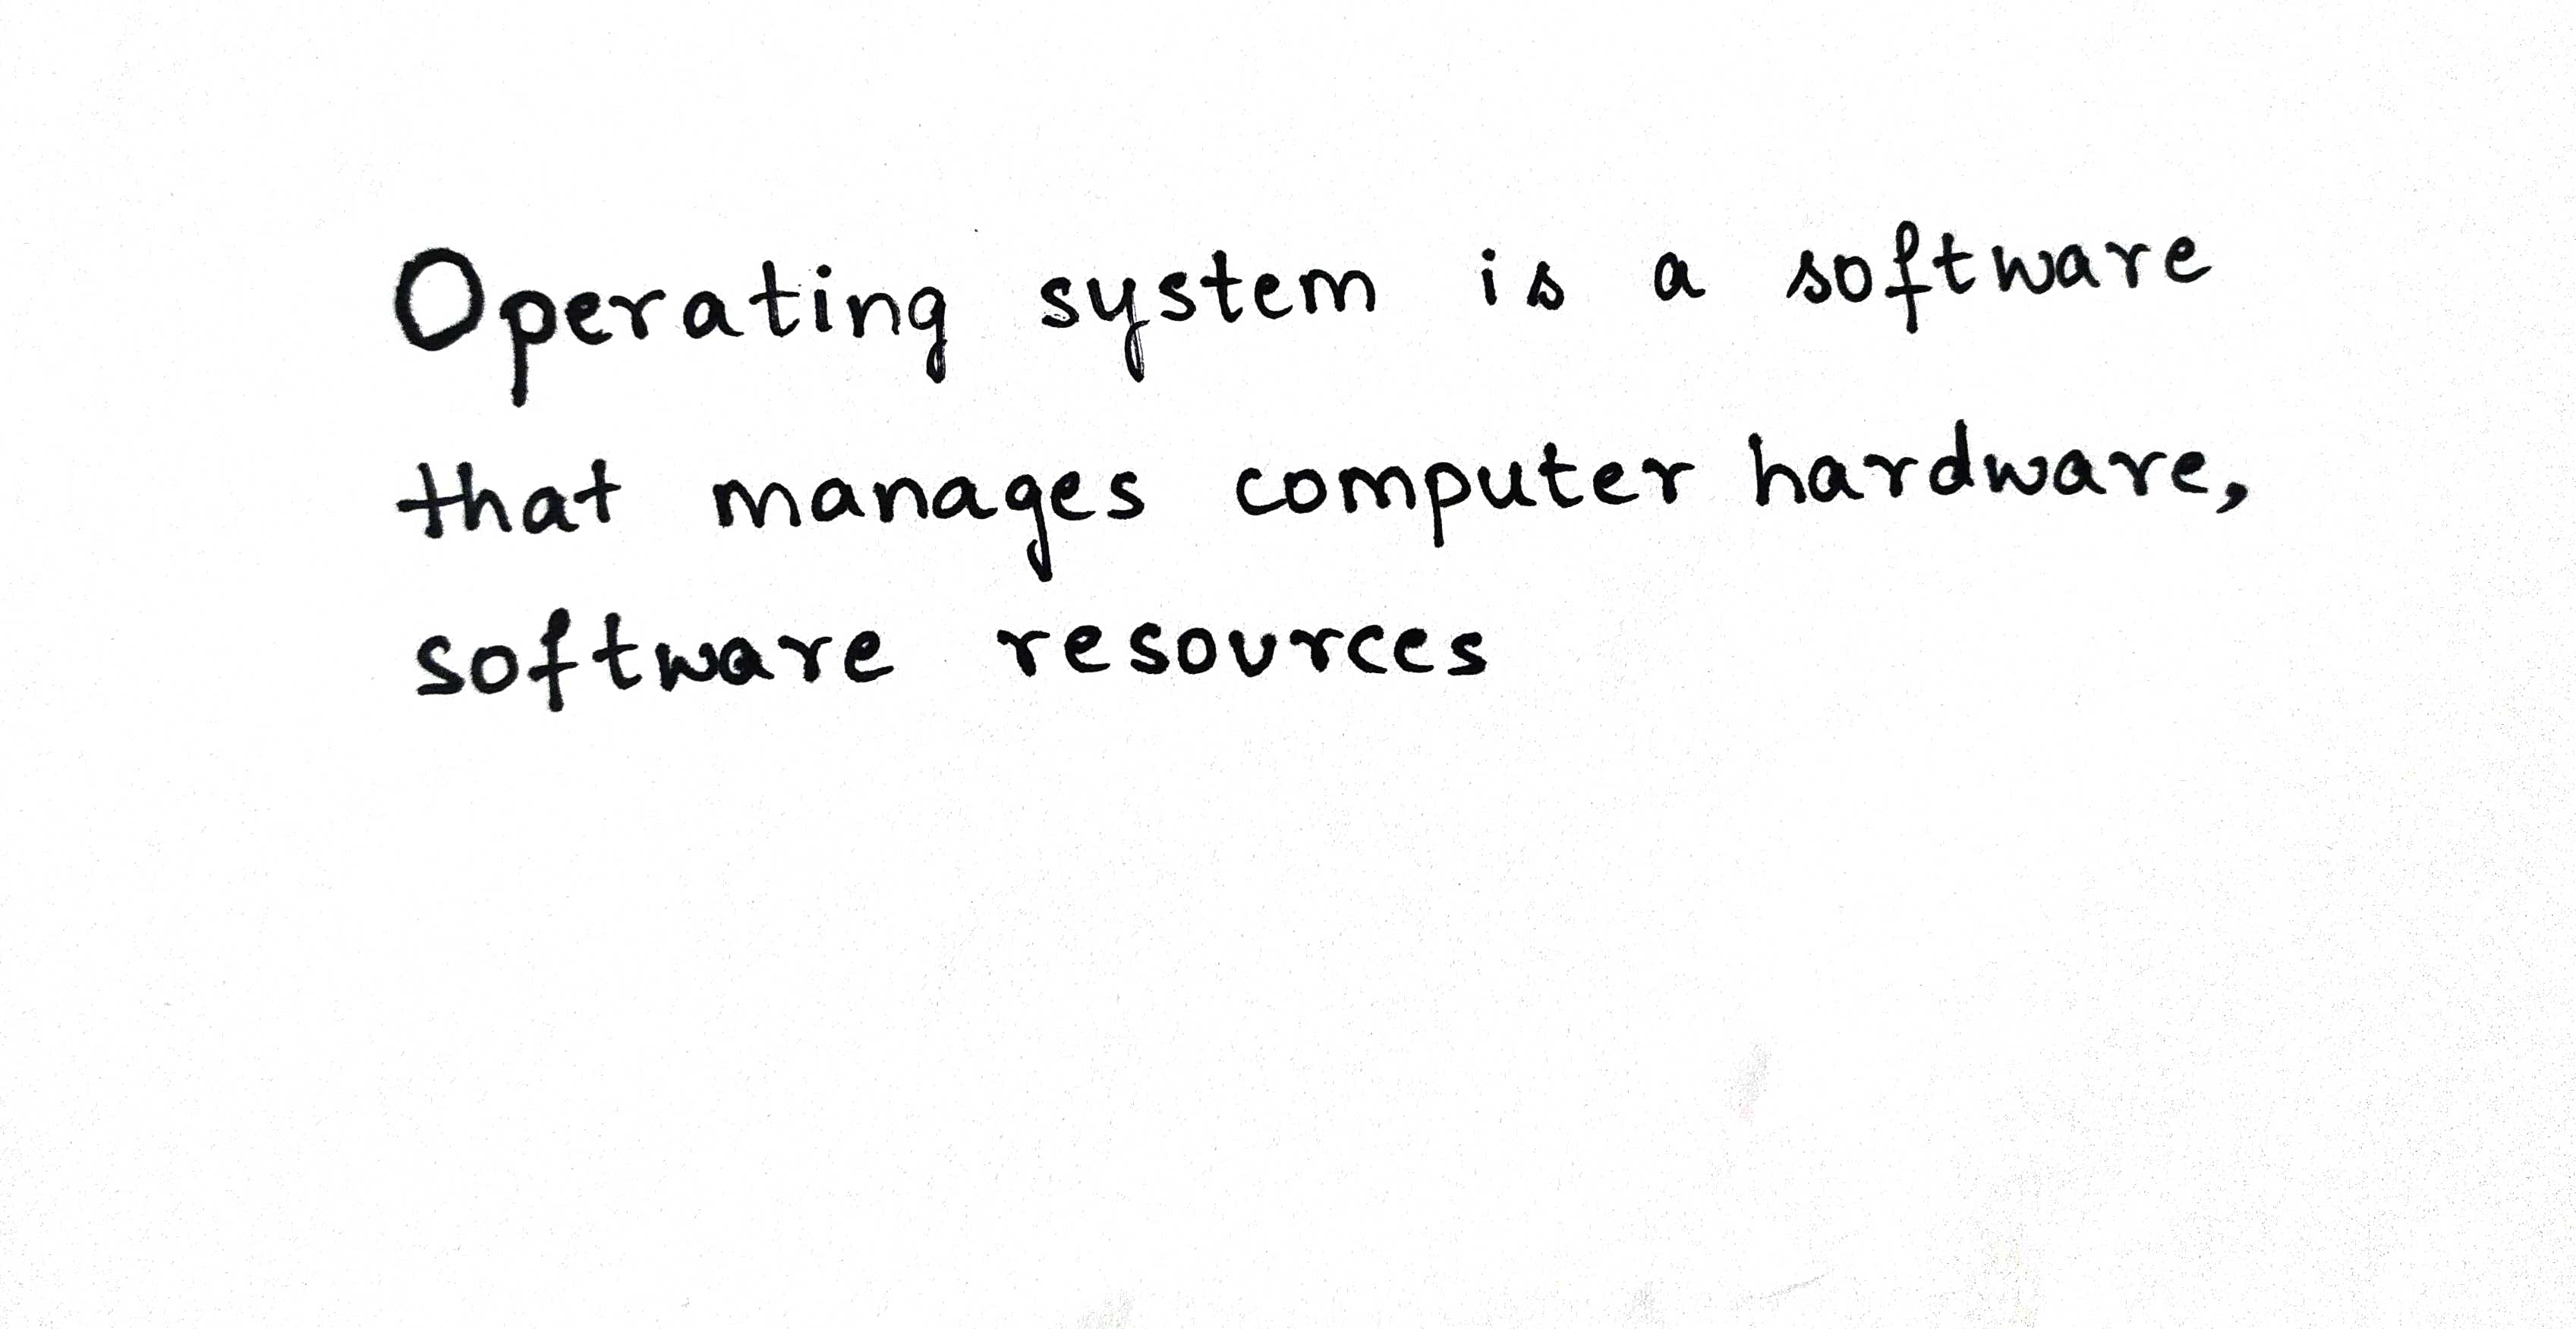 Operating system is a software
that manages computer hardware,
software resources